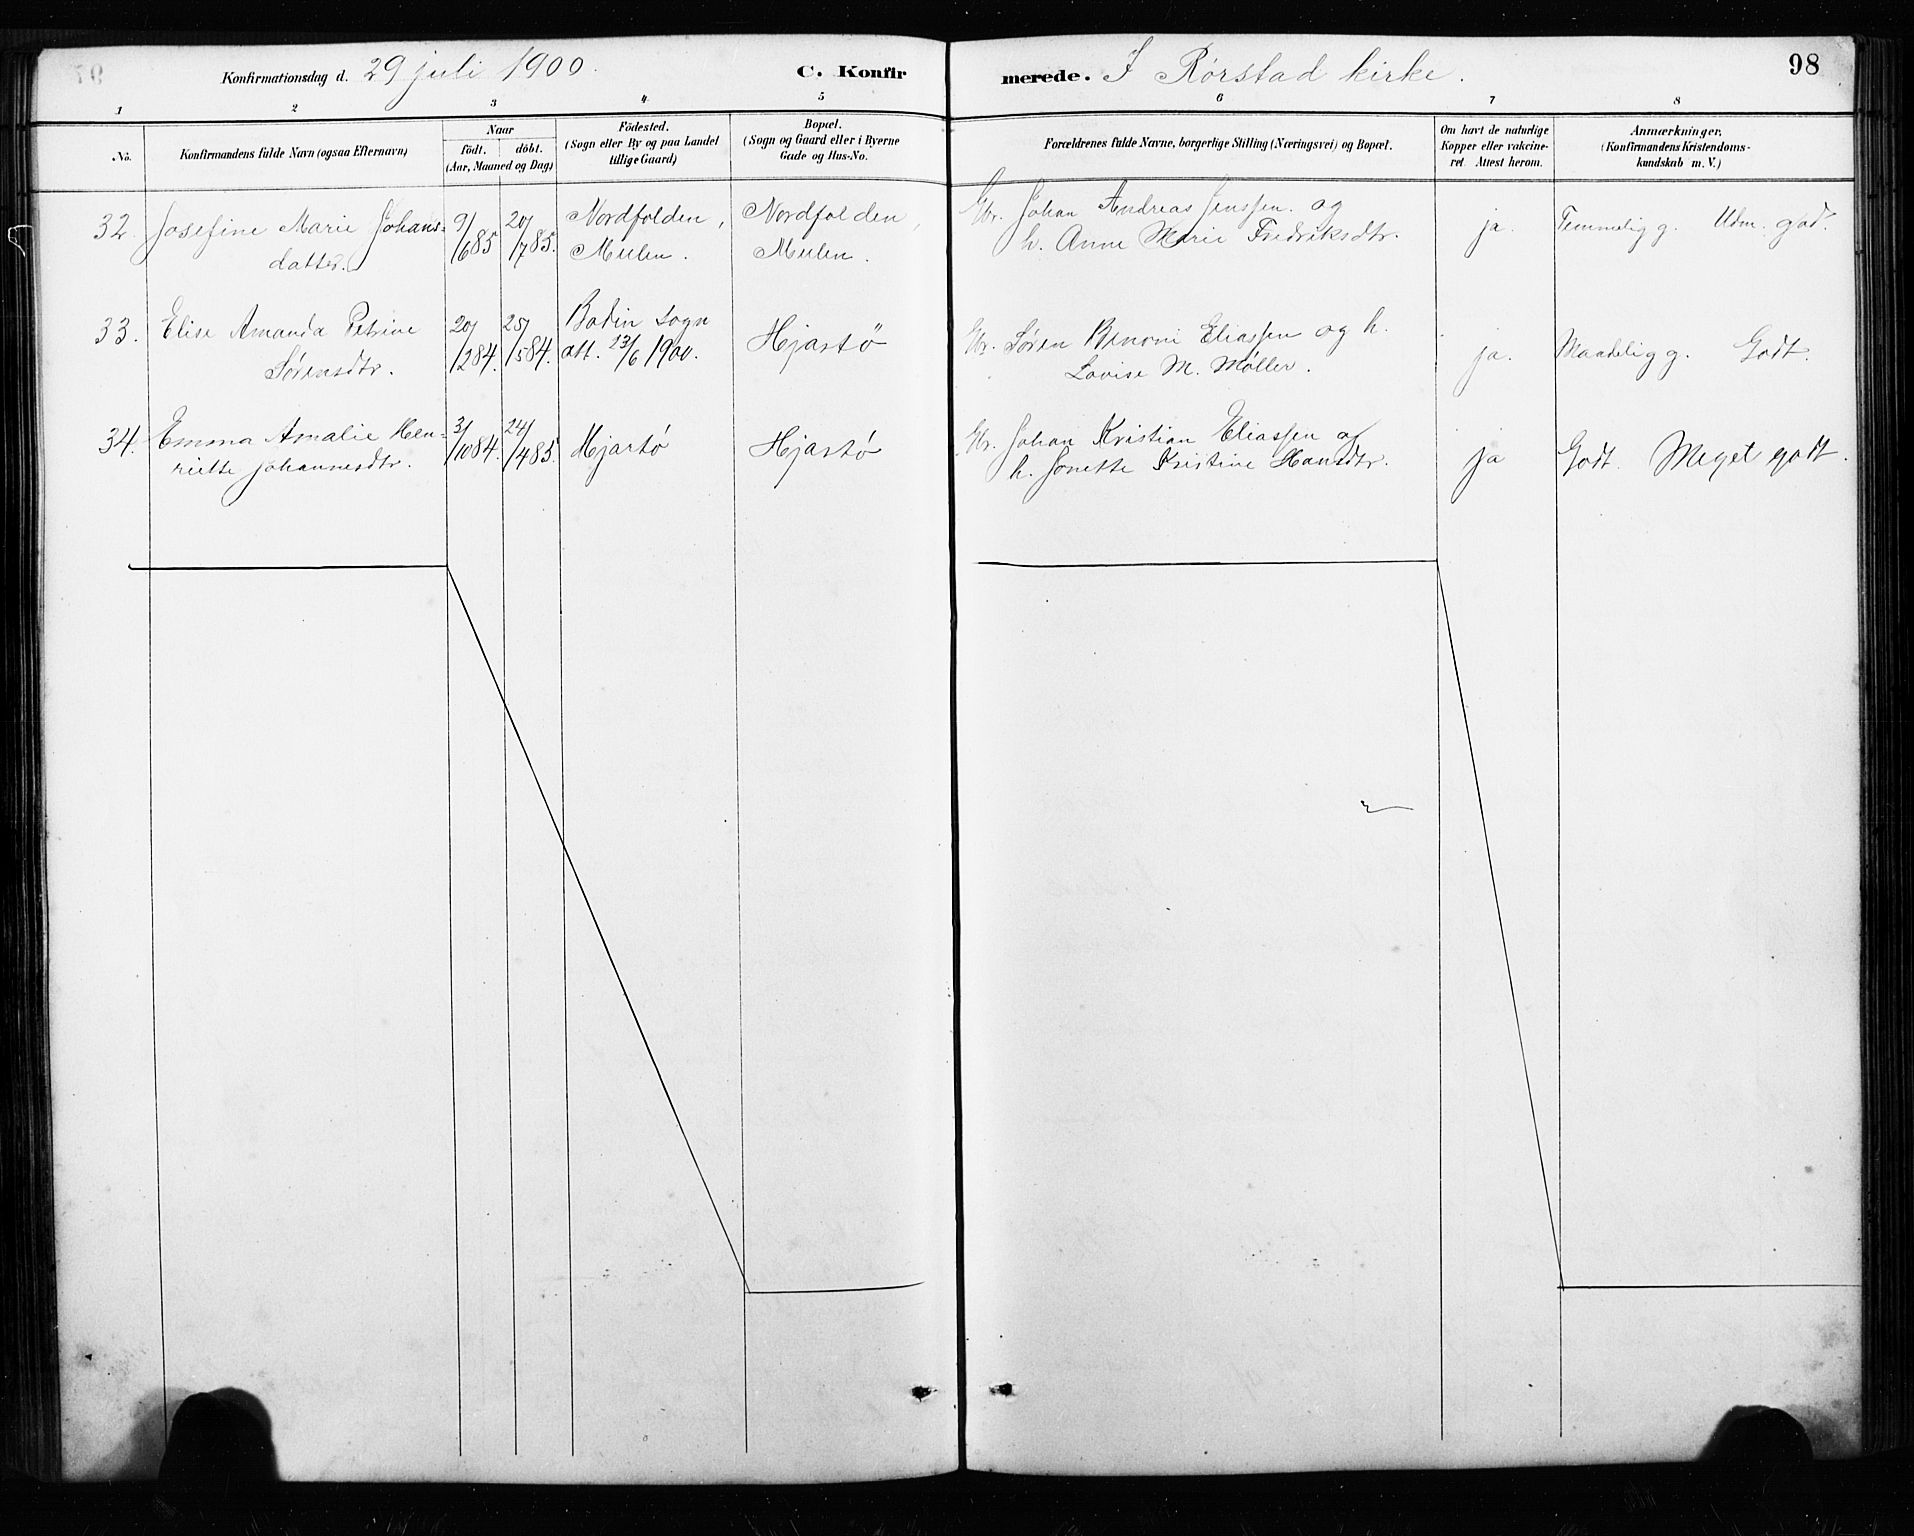 Konfirmationsdag d. 29 juli 1900. C. Konfirmerede. I Rørstad kirke. 98
1 2 3 4 5 6 7 8
No.
Konfirmandens fulde Navn (ogsaa Efternavn)
Naar
födt. döbt.
(Aar, Maaned og Dag)
Födested.
(Sogn eller By og paa Landet
tillige Gaard)
Bopæl.
(Sogn og Gaard eller i Byerne
Gade og Hus-No.
Forældrenes fulde Navne, borgerlige Stilling (Næringsvei) og Bopæl.
Om havt de naturlige
Kopper eller vakcine-
ret. Attest herom.
Anmærkninger.
(Konfirmandens Kristendoms-
kundskab m. V.)
32. Josefine Marie Johans- 9/6 85 20/7 85. Nordfolden, Nordfolden, Gbr. Johan Andreas Jenssen og ja. Temmelig g. Udm. god.
datter. Meelen. Meelen. h. Anne Marie Fredriksdtr.
33. Elise Amanda Petrine 20/1 284. 25/5 84. Bodin sogn Hjartø Gbr. Søren Benoni Eliassen og h. ja. Maadelig g. Godt.
Sørensdtr. att. 23/6 1900. Lovise M. Møller.
34. Emma Amalie Hen- 3/10 84. 24/4 85. Hjartø Hjartø Gbr. Johan Kristian Eliassen og ja Godt. Meget godt.
riette Johannesdtr. h. Jonette Kristine Hansdtr.